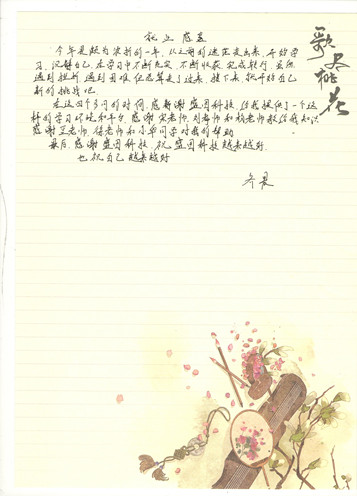 就业感言
今年是颇为农折的一年,从之前的迷茫走出来,开始学
习,沉静自己,在学习中不断充实,不断收获,完成转行,虽然
遇到挫折,遇到困难,但总算走了过来,接下来,就开始自己
新的挑战吧.
在这四个多月的时间,感谢谢盛图科技,给我提供了一个这
样的学习环境和平台,感谢宋老师,刘老师和杨老师教给我知识
感谢兰老师,褚老师和小单同学对我的帮助
最后,感谢盛图科技,祝盛图科技越来越好.
也祝自己越来越好
齐晨
歌尽桃花